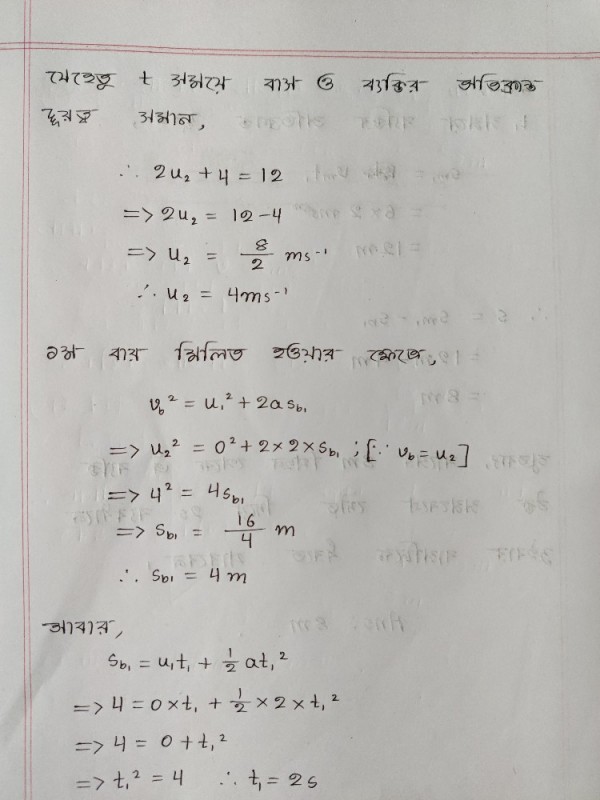 যেহেতু t সময়ে বাস ও ব্যক্তির অতিক্রান্ত
দূরত্ব সমান,
∴ 2u₂ + 4 = 12
=> 2u₂ = 12 - 4
=> u₂ = 8/2 ms⁻¹
∴ u₂ = 4ms⁻¹
১ম বার মিলিত হওয়ার ক্ষেত্রে,
v_b² = u₁² + 2as_b₁
=> u₂² = 0² + 2×2×s_b₁ ; [∵ v_b = u₂]
=> 4² = 4s_b₁
=> s_b₁ = 16/4 m
∴ s_b₁ = 4 m
আবার,
s_b₁ = u₁t₁ + 1/2 at₁²
=> 4 = 0×t₁ + 1/2 × 2 × t₁²
=> 4 = 0 + t₁²
=> t₁² = 4 ∴ t₁ = 2s